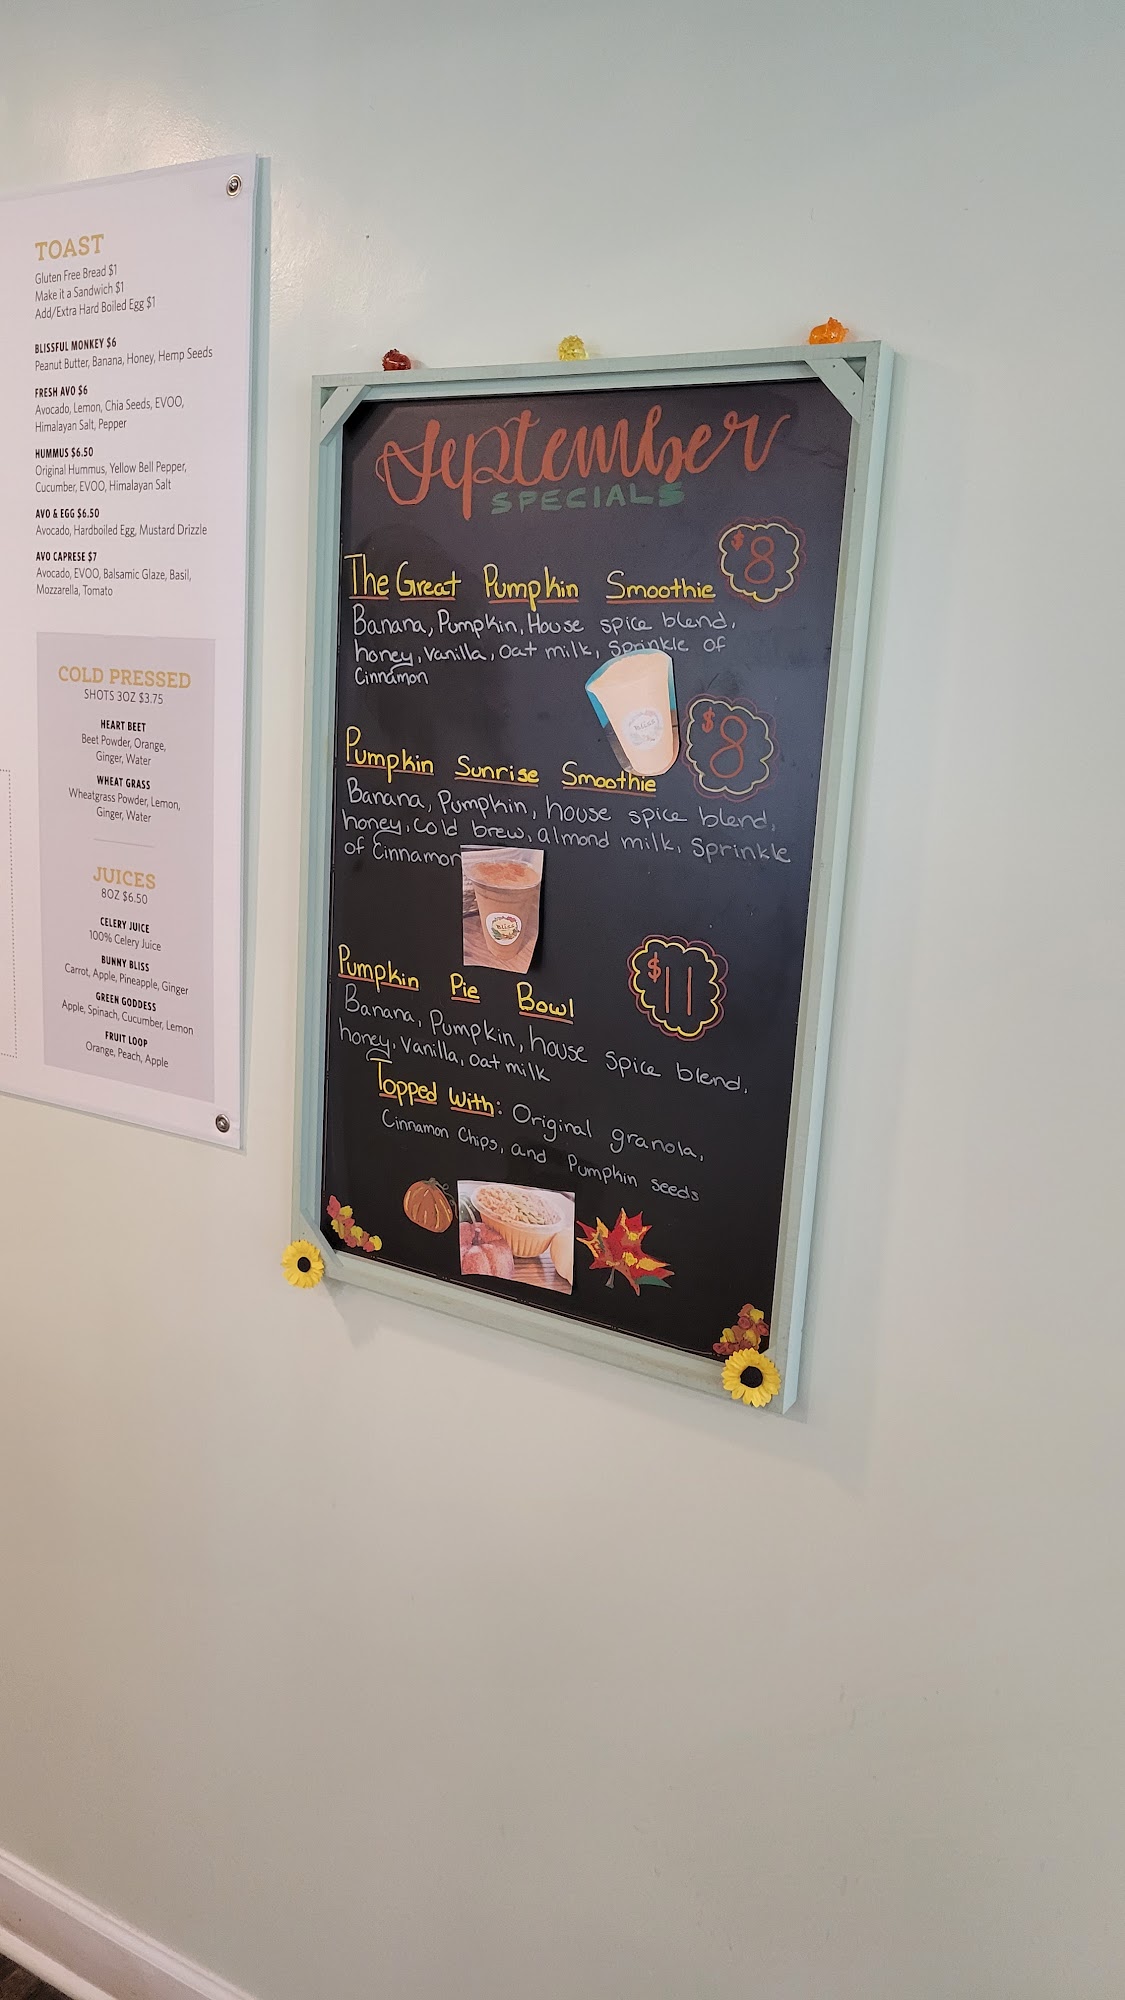 TOAST
Gluten Free Bread $1
Make it a Sandwich $1
Add/Extra Hard Boiled Egg $1
BLISSFUL MONKEY $6
Peanut Butter, Banana, Honey, Hemp Seeds
FRESH AVO $6
Avocado, Lemon, Chia Seeds, EVOO,
Himalayan Salt, Pepper
HUMMUS $6.50
Original Hummus, Yellow Bell Pepper,
Cucumber, EVOO, Himalayan Salt
AVO & EGG $6.50
Avocado, Hardboiled Egg, Mustard Drizzle
AVO CAPRESE $7
Avocado, EVOO, Balsamic Glaze, Basil,
Mozzarella, Tomato
COLD PRESSED
SHOTS 3OZ $3.75
HEART BEET
Beet Powder, Orange,
Ginger, Water
WHEAT GRASS
Wheatgrass Powder, Lemon,
Ginger, Water
JUICES
8OZ $6.50
CELERY JUICE
100% Celery Juice
BUNNY BLISS
Carrot, Apple, Pineapple, Ginger
GREEN GODDESS
Apple, Spinach, Cucumber, Lemon
FRUIT LOOP
Orange, Peach, Apple
September
SPECIALS
The Great Pumpkin Smoothie $8
Banana, Pumpkin, House spice blend,
honey, vanilla, oat milk, Sprinkle of
Cinnamon
Bliss
Pumpkin Sunrise Smoothie $8
Banana, Pumpkin, house spice blend,
honey, cold brew, almond milk, Sprinkle
of Cinnamon
Bliss
Pumpkin Pie Bowl $11
Banana, Pumpkin, house spice blend,
honey, vanilla, oat milk
Topped With: Original granola,
Cinnamon Chips, and Pumpkin seeds